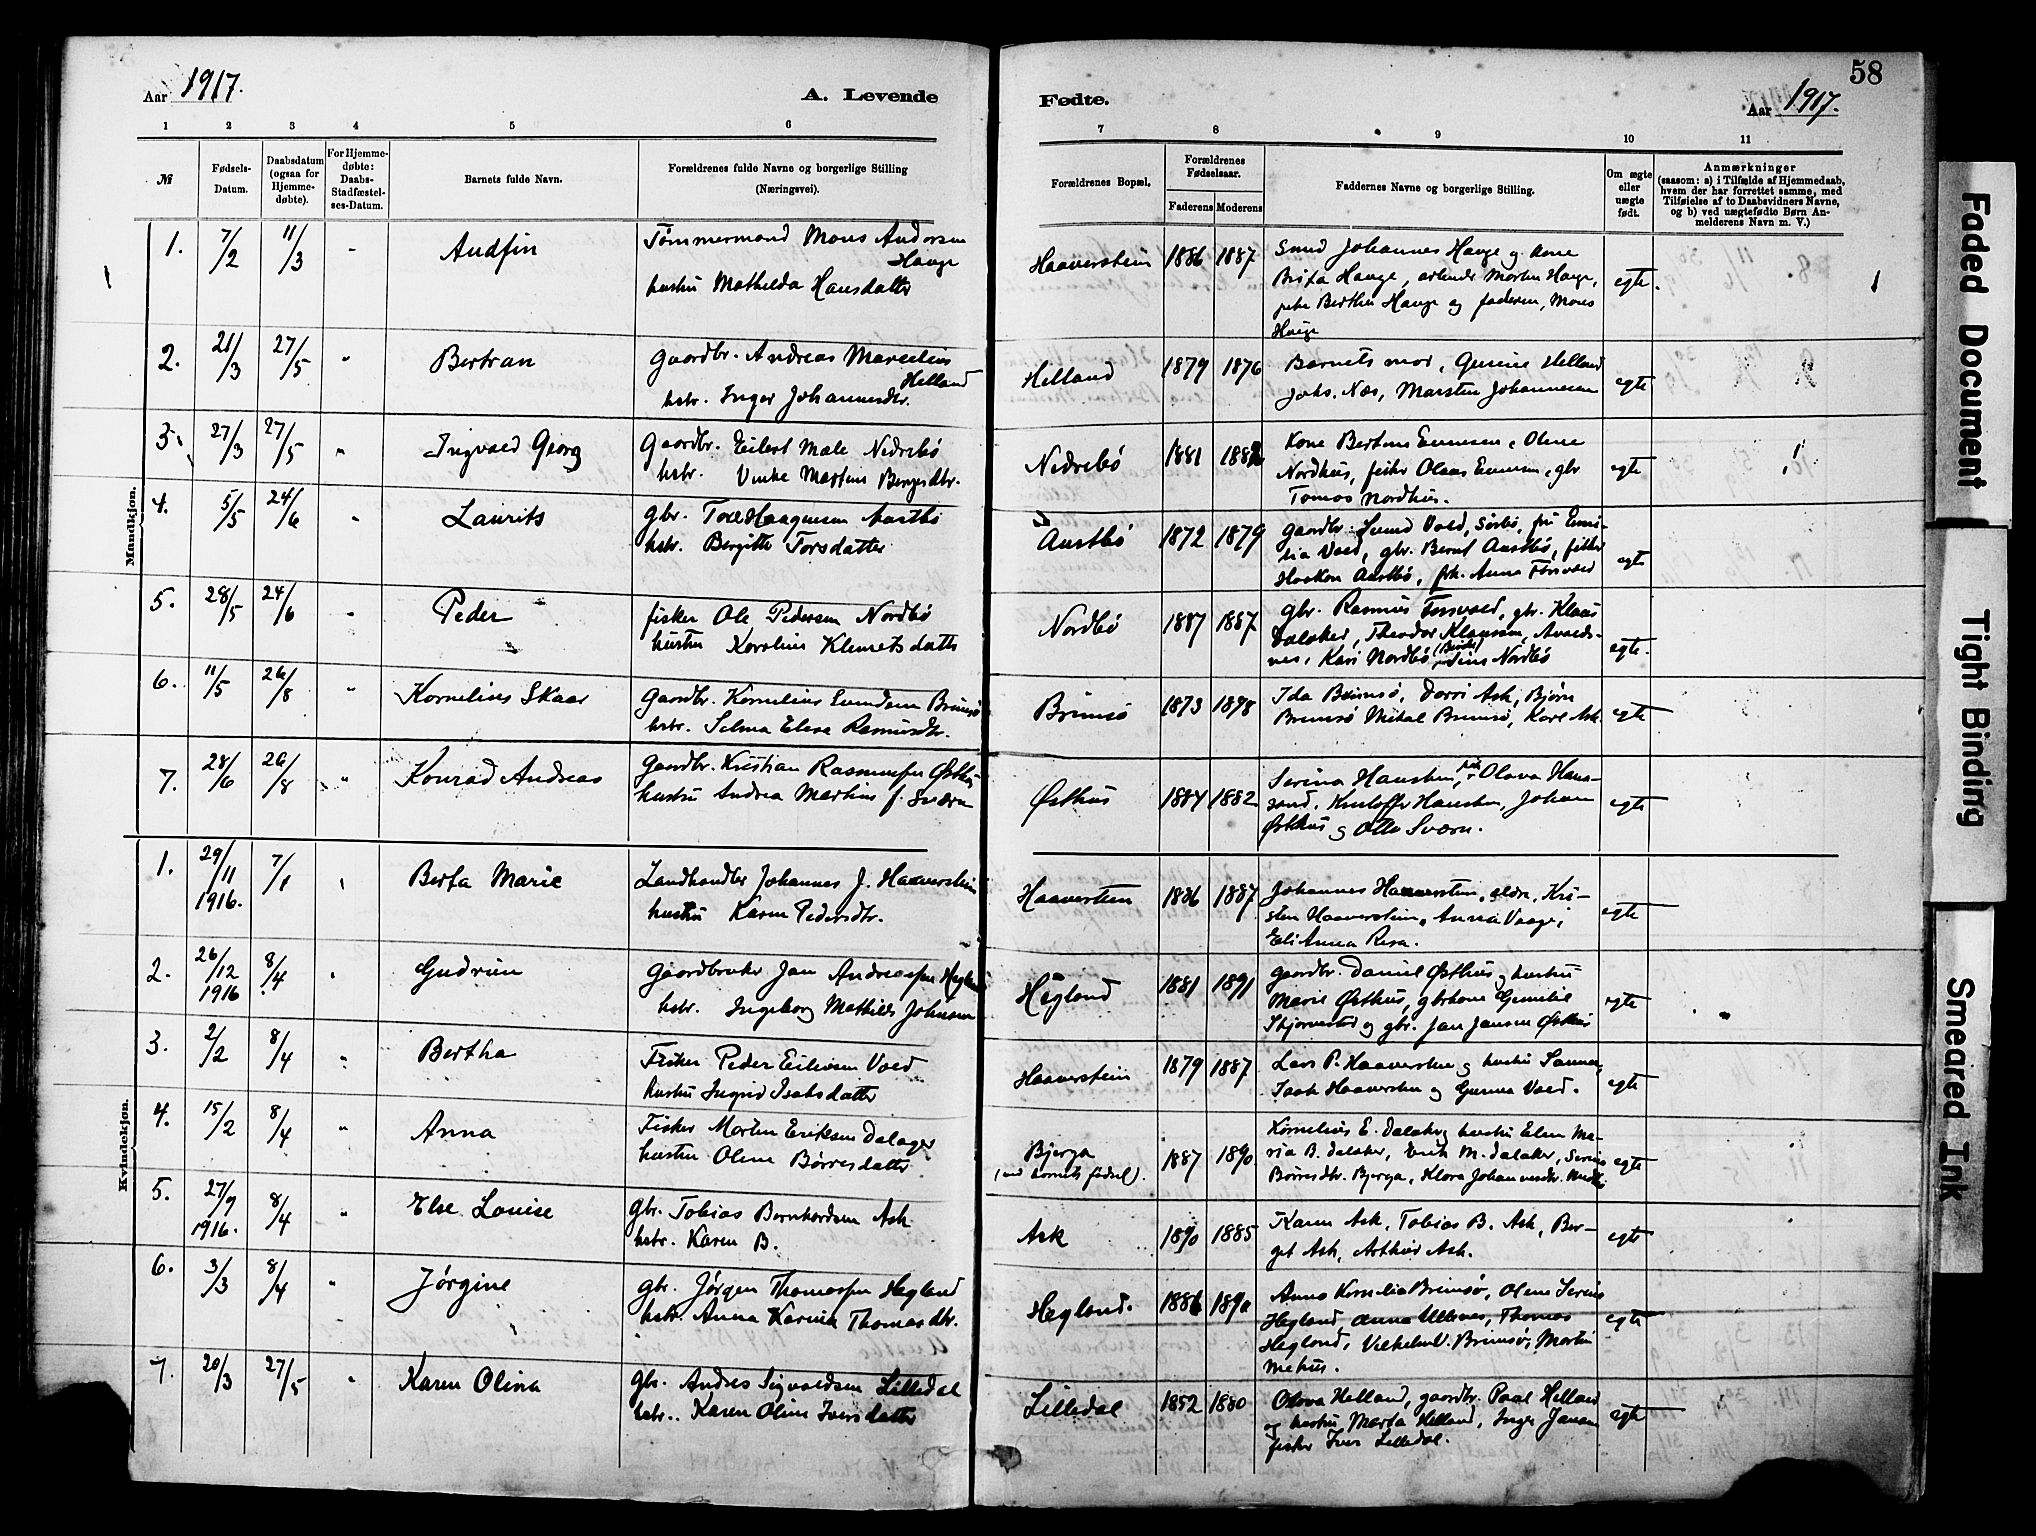 58
Aar 1917. A. Levende Fødte. Aar 1917.
1 2 3 4 5 6 7 8 9 10 11
№
Fødsels-
Datum.
Daabsdatum
(ogsaa for
Hjemme-
døbte).
For Hjemme-
døbte:
Daabs-
Stadfæstel-
ses-Datum.
Barnets fulde Navn.
Forældrenes fulde Navne og borgerlige Stilling
(Næringsvei).
Forældrenes Bopæl.
Forældrenes
Fødselsaar.
Faderens Moderens
Faddernes Navne og borgerlige Stilling.
Om ægte
eller
uægte
født.
Anmærkninger
(saasom: a) i Tilfælde af Hjemmedaab,
hvem der har forrettet samme, med
Tilføielse af to Daabsvidners Navne,
og b) ved uægtefødte Børn An-
melderens Navn m. V.)
Mandkjøn.
1. 7/2 11/3 Audfin
Tømmermand Mons Andersen
Hauge
hustru Mathilda Hansdatter
Haaverstein 1886 1887
Smed Johannes Hauge og kone
Brita Hauge, arbeider Morten Hauge,
Berthe Hauge og faderen, Mons
Hauge
egte.
2. 21/3 27/5 " Bertran
Gaardbr. Andreas Marcelius
Helland
hstr. Inger Johannesdtr.
Helland 1879 1876
Barnets mor, Gurine Helland
Johs. Næs, Marsten Johannesen
egte
3. 27/3 27/5 " Ingvald Georg
Gaardbr. Eilert Male Nedrebø
hstr. Vinke Martine Bergesdtr.
Nedrebø 1881
Kone Bertine Evensen, Oline
Nordhus, fisker Olaas Evensen, gbr
Tomas Nordhus.
egte
4. 5/5 24/6 " Laurits
gbr. Tore Haagensen Austbø
hstr. Bergitte Torsdatter
Austbø 1872 1879
gaardbr. Svend Vold, Sørbø, fru Emi-
lia Vold, gbr. Bernt Austbø, fisker
Haakon Austbø, frk. Anna Forsvold
egte
5. 28/5 24/6 " Peder
fisker Ole Pedersen Nordbø
hustru Karoline Klemetsdatter
Nordbø 1887 1887
gbr. Rasmus Forsvold, gbr. Klaus
Dalaker, Theodor Klausen, Avalds-
nes, Kari Nordbø, Nordbø
egte.
6. 11/5 26/8 " Kornelius Skaar
Gaardbr. Kornelius Svendsen Brimsø
hstr. Selma Elese Rasmusdtr.
Brimsø 1873 1898
Ida Brimsø, Dorri Ask, Bjørn
Brimsø Mikal Brimsø, Karl Ask
egte
7. 28/6 26/8 " Konrad Andreas
Gaardbr. Kristian Rasmussen Østhus
hustru Andrea Martine f. Sværn
Østhus 1884 1882
Serina Hausken, Olava Hans-
sand, Kristoffer Hausken, Johan
Østhus og Otto Sværn.
egte
Kvindekjøn.
1. 29/11 1916. 7/1 Berta Marie
Landhandler Johannes J. Haaverstein
hustru Karen Pedersdtr.
Haaverstein 1886 1887
Johannes Haaverstein, ældre, Kri-
sten Haaverstein, Anna Vaage,
Eli Anna Resa.
egte
2. 26/12 1916 8/4 Gudrun
Gaardbruker Jan Andreassen Hegland
hstr. Ingeborg Mathilde Johnsen
Hegland 1881 1891
Gaardbr. Daniel Østhus og hustru
Marie Østhus, gbrkone Gunilie
Skjørvestad og gbr. Jan Jansen Østhus
egte
3. 2/2 8/4 " Bertha
Fisker Peder Eilevsen Vold
hustru Ingrid Isaksdatter
Haaverstein 1879 1887
Lars P. Haaverstein og hustru Sanna,
Isak Haaverstein og Gurina Vold.
egte
4. 15/2 8/4 " Anna
Fisker Morten Eriksen Dalager
hustru Oline Børresdatter
Bjerga
(ved barnets fødsel). 1887 1890
Kornelius E. Dalaker og hustru Elen Ma-
ria B. Dalaker, Erik M. Dalaker, Serine
Børresdtr. Bjerga, Klara Johannesdtr.
egte
5. 27/9 1916. 8/4 " Else Louise
gbr. Tobias Bernhardsen Ask
hstr. Karen B.
Ask 1890 1885
Karen Ask, Tobias B. Ask, Ber-
get Ask, Arthur Ask.
egte
6. 3/3 8/4 " Jørgine
gbr. Jørgen Thomassen Hegland
hstr. Anna Karina Thomasdtr.
Hegland. 1886 1890
Anna Kornelia Brimsø, Oline Serine
Hegland, Anna Utvnes, Thomas
Hegland, Vilhelm V. Brimsø, Martin
Mehus.
egte
7. 20/3 27/5 " Karen Olina
gbr. Andres Sigvaldsen Lilledal
hstr. Karen Oline Iversdatter
Lilledal 1852 1880
Olava Helland, gaardbr. Paal Helland
og hustru Marta Helland, Inger Jansen
fisker Iver Lilledal.
egte
Faded Document
Tight Binding
Smeared Ink